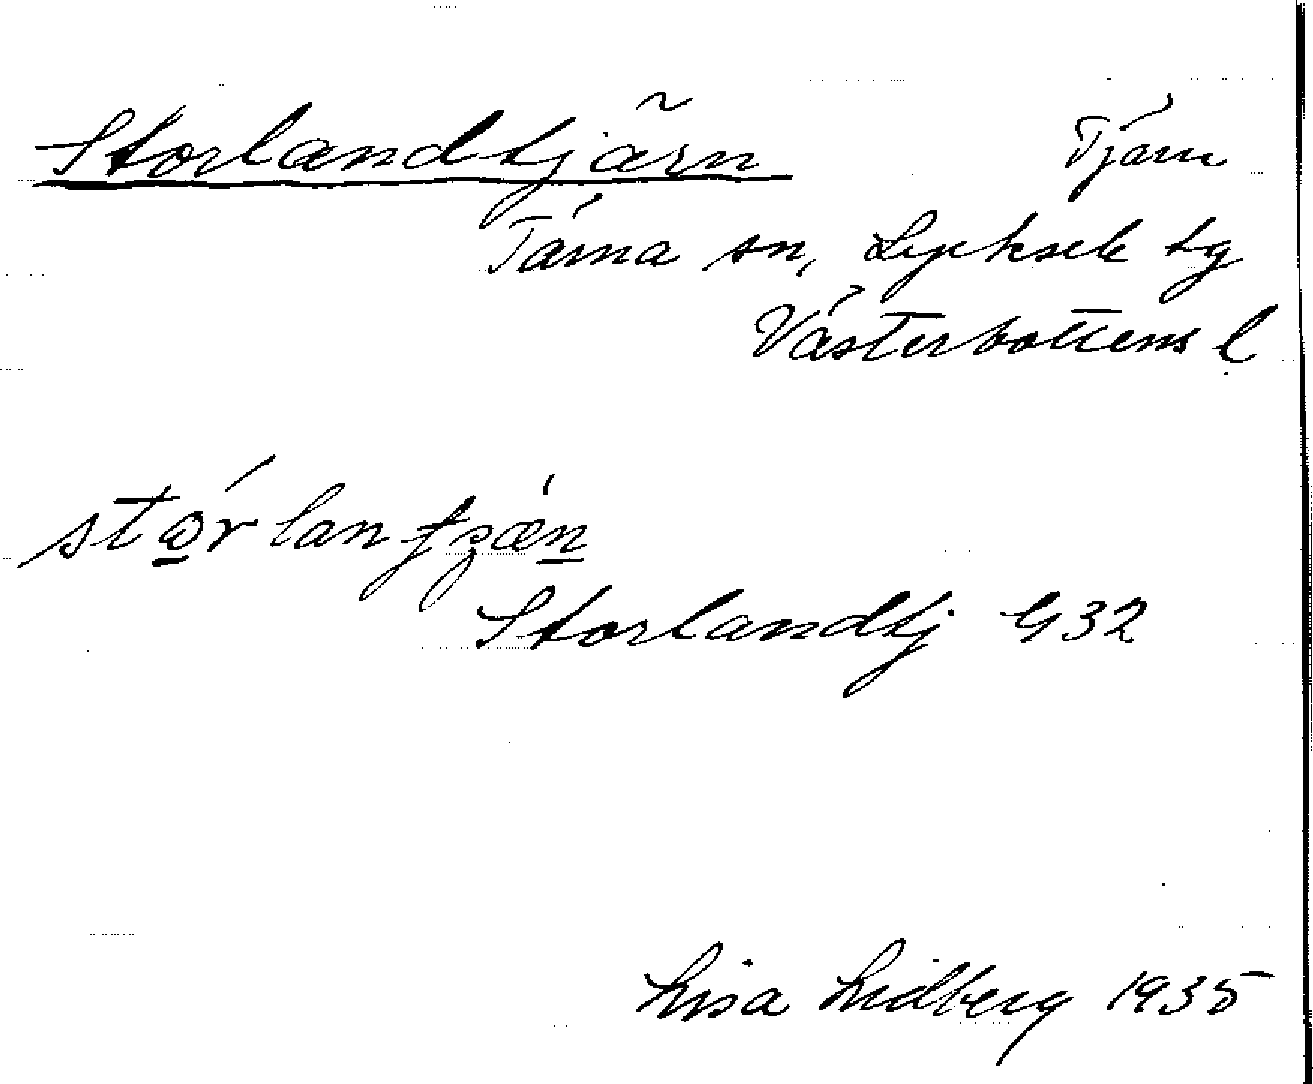 Storlandtjärn Tjärn
Tärna sn, Lycksele tg
Västerbottens l
Storlandtj G32
Lisa Lidberg 1935